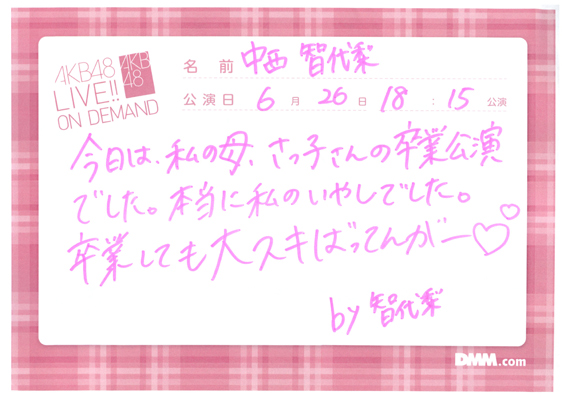 AKB48
LIVE!!
ON DEMAND
AKB
48
名前 中西 智代梨
公演日 6月26日 18:15公演
今日は、私の母、さっ子さんの卒業公演
でした。本当に私のいやしでした。
卒業しても大スキばってんがー♡♡
by 智代梨
DMM.com